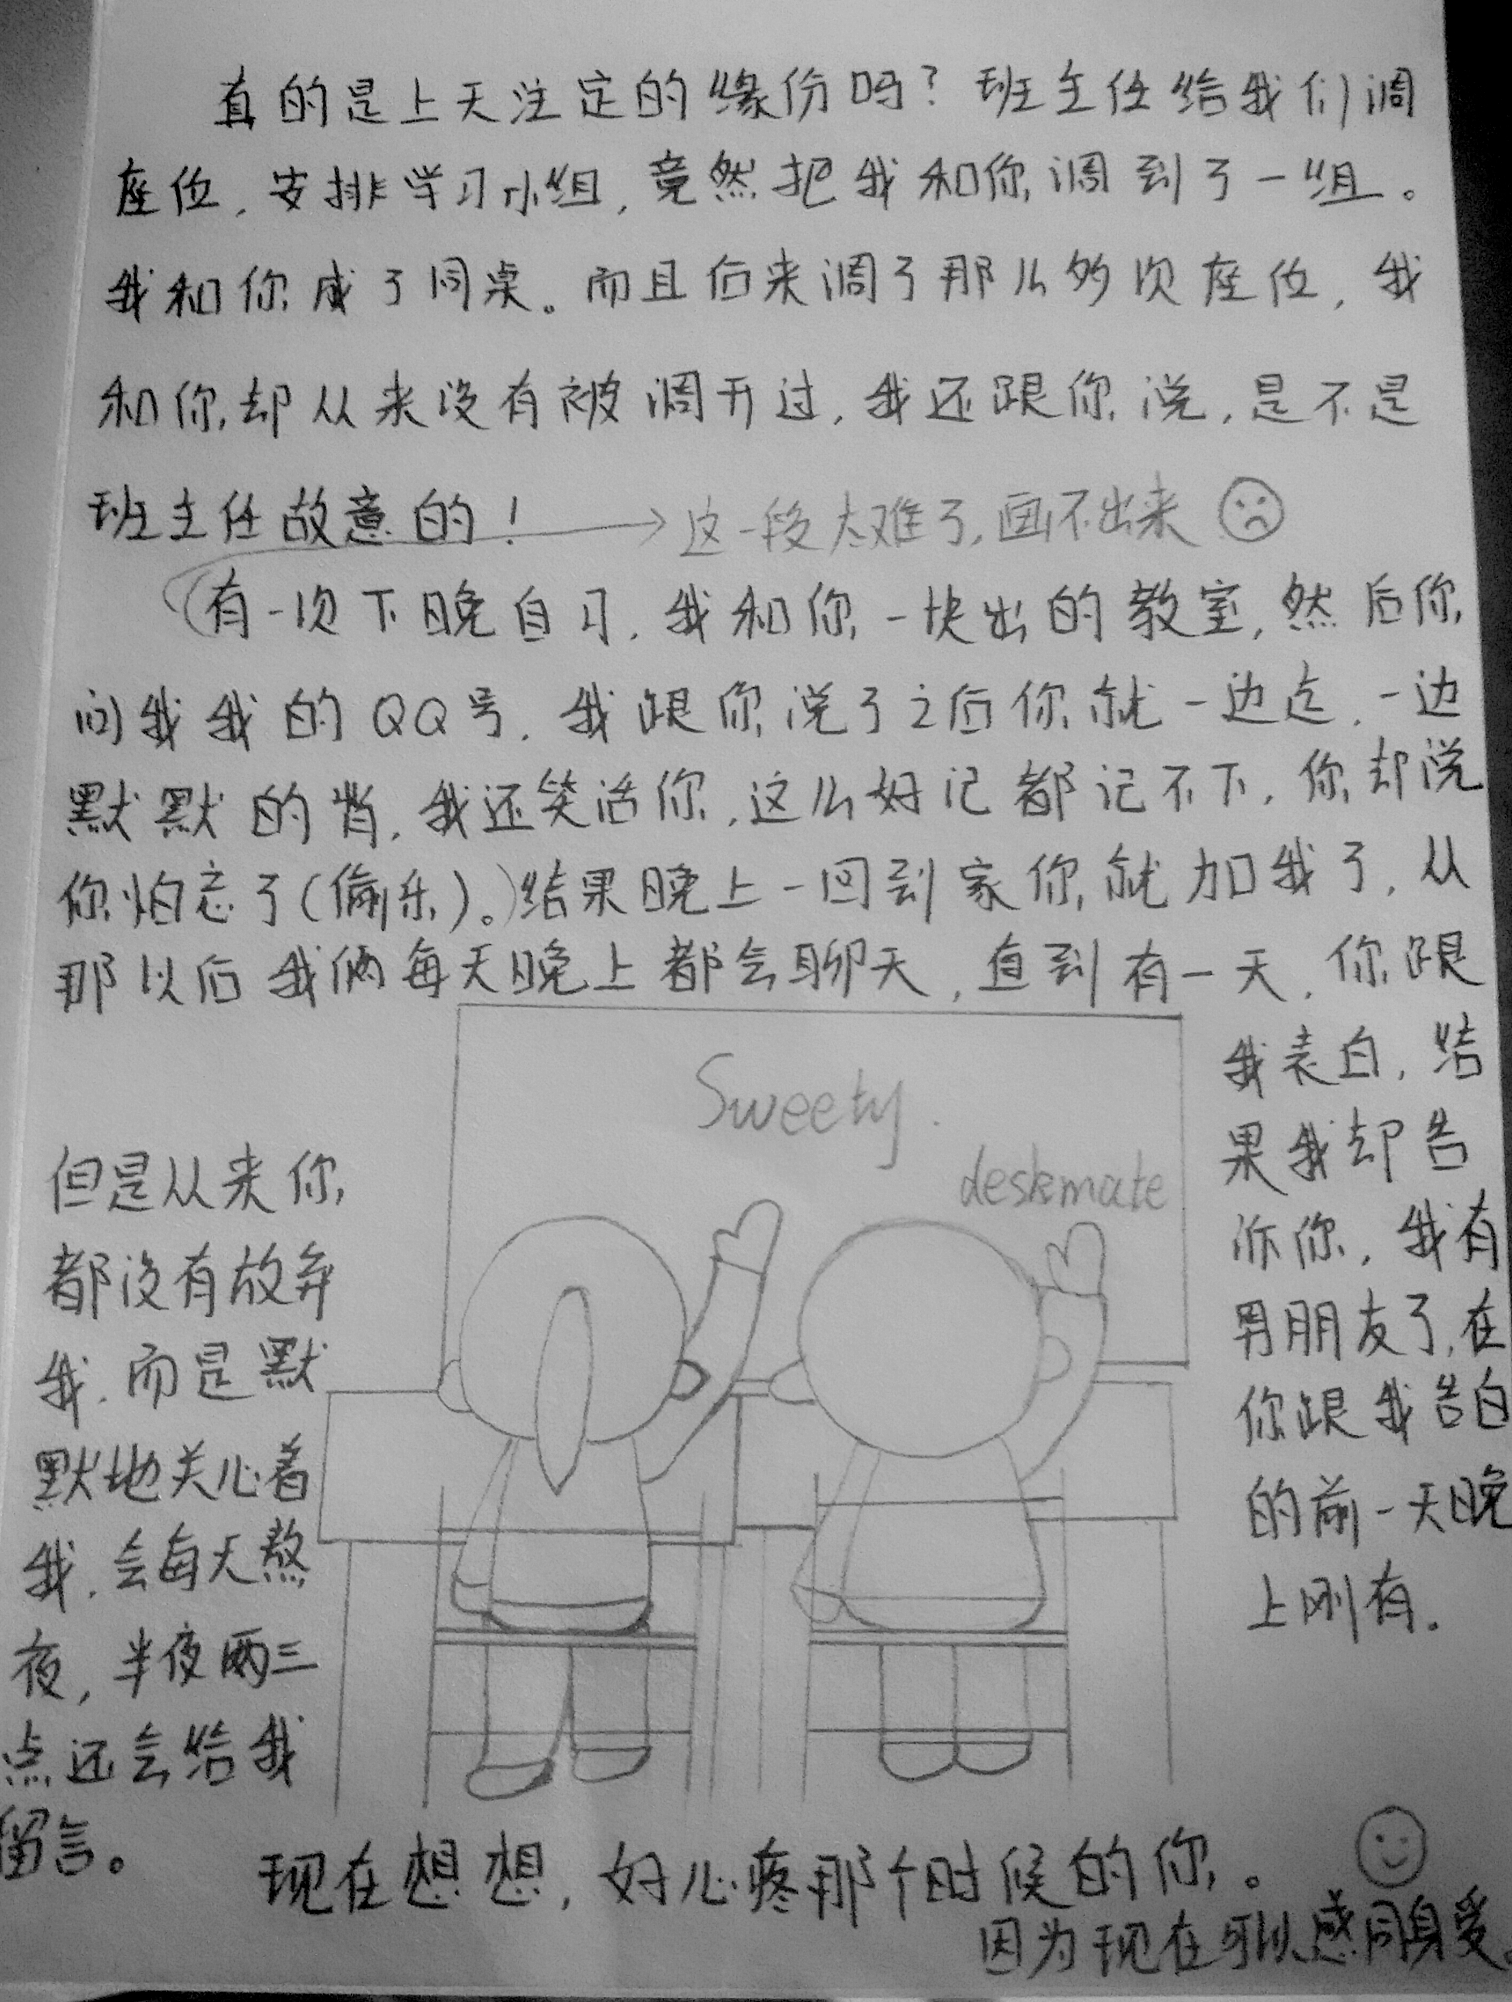 真的是上天注定的缘份吗？班主任给我们调
座位，安排学习小组，竟然把我和你调到了一组。
我和你成了同桌。而且后来调了那么多次座位，我
和你却从来没有被调开过，我还跟你说，是不是
班主任故意的！
这一段太难了，画不出来
（有一次下晚自习，我和你一块出的教室，然后你
问我我的QQ号，我跟你说了之后你就一边走，一边
默默的背，我还笑话你，这么好记都记不下，你却说
你怕忘了（偷乐）。）结果晚上一回到家你就加我了，从
那以后我俩每天晚上都会聊天，直到有一天，你跟
我表白，结
果我却告
诉你，我有
男朋友了，在
你跟我告白
的前一天晚
上刚有。
Sweety
deskmate
但是从来你
都没有放弃
我，而是默
默地关心着
我，会每天熬
夜，半夜两三
点还会给我
留言。
现在想想，好心疼那个时候的你。
因为现在可以感同身受。